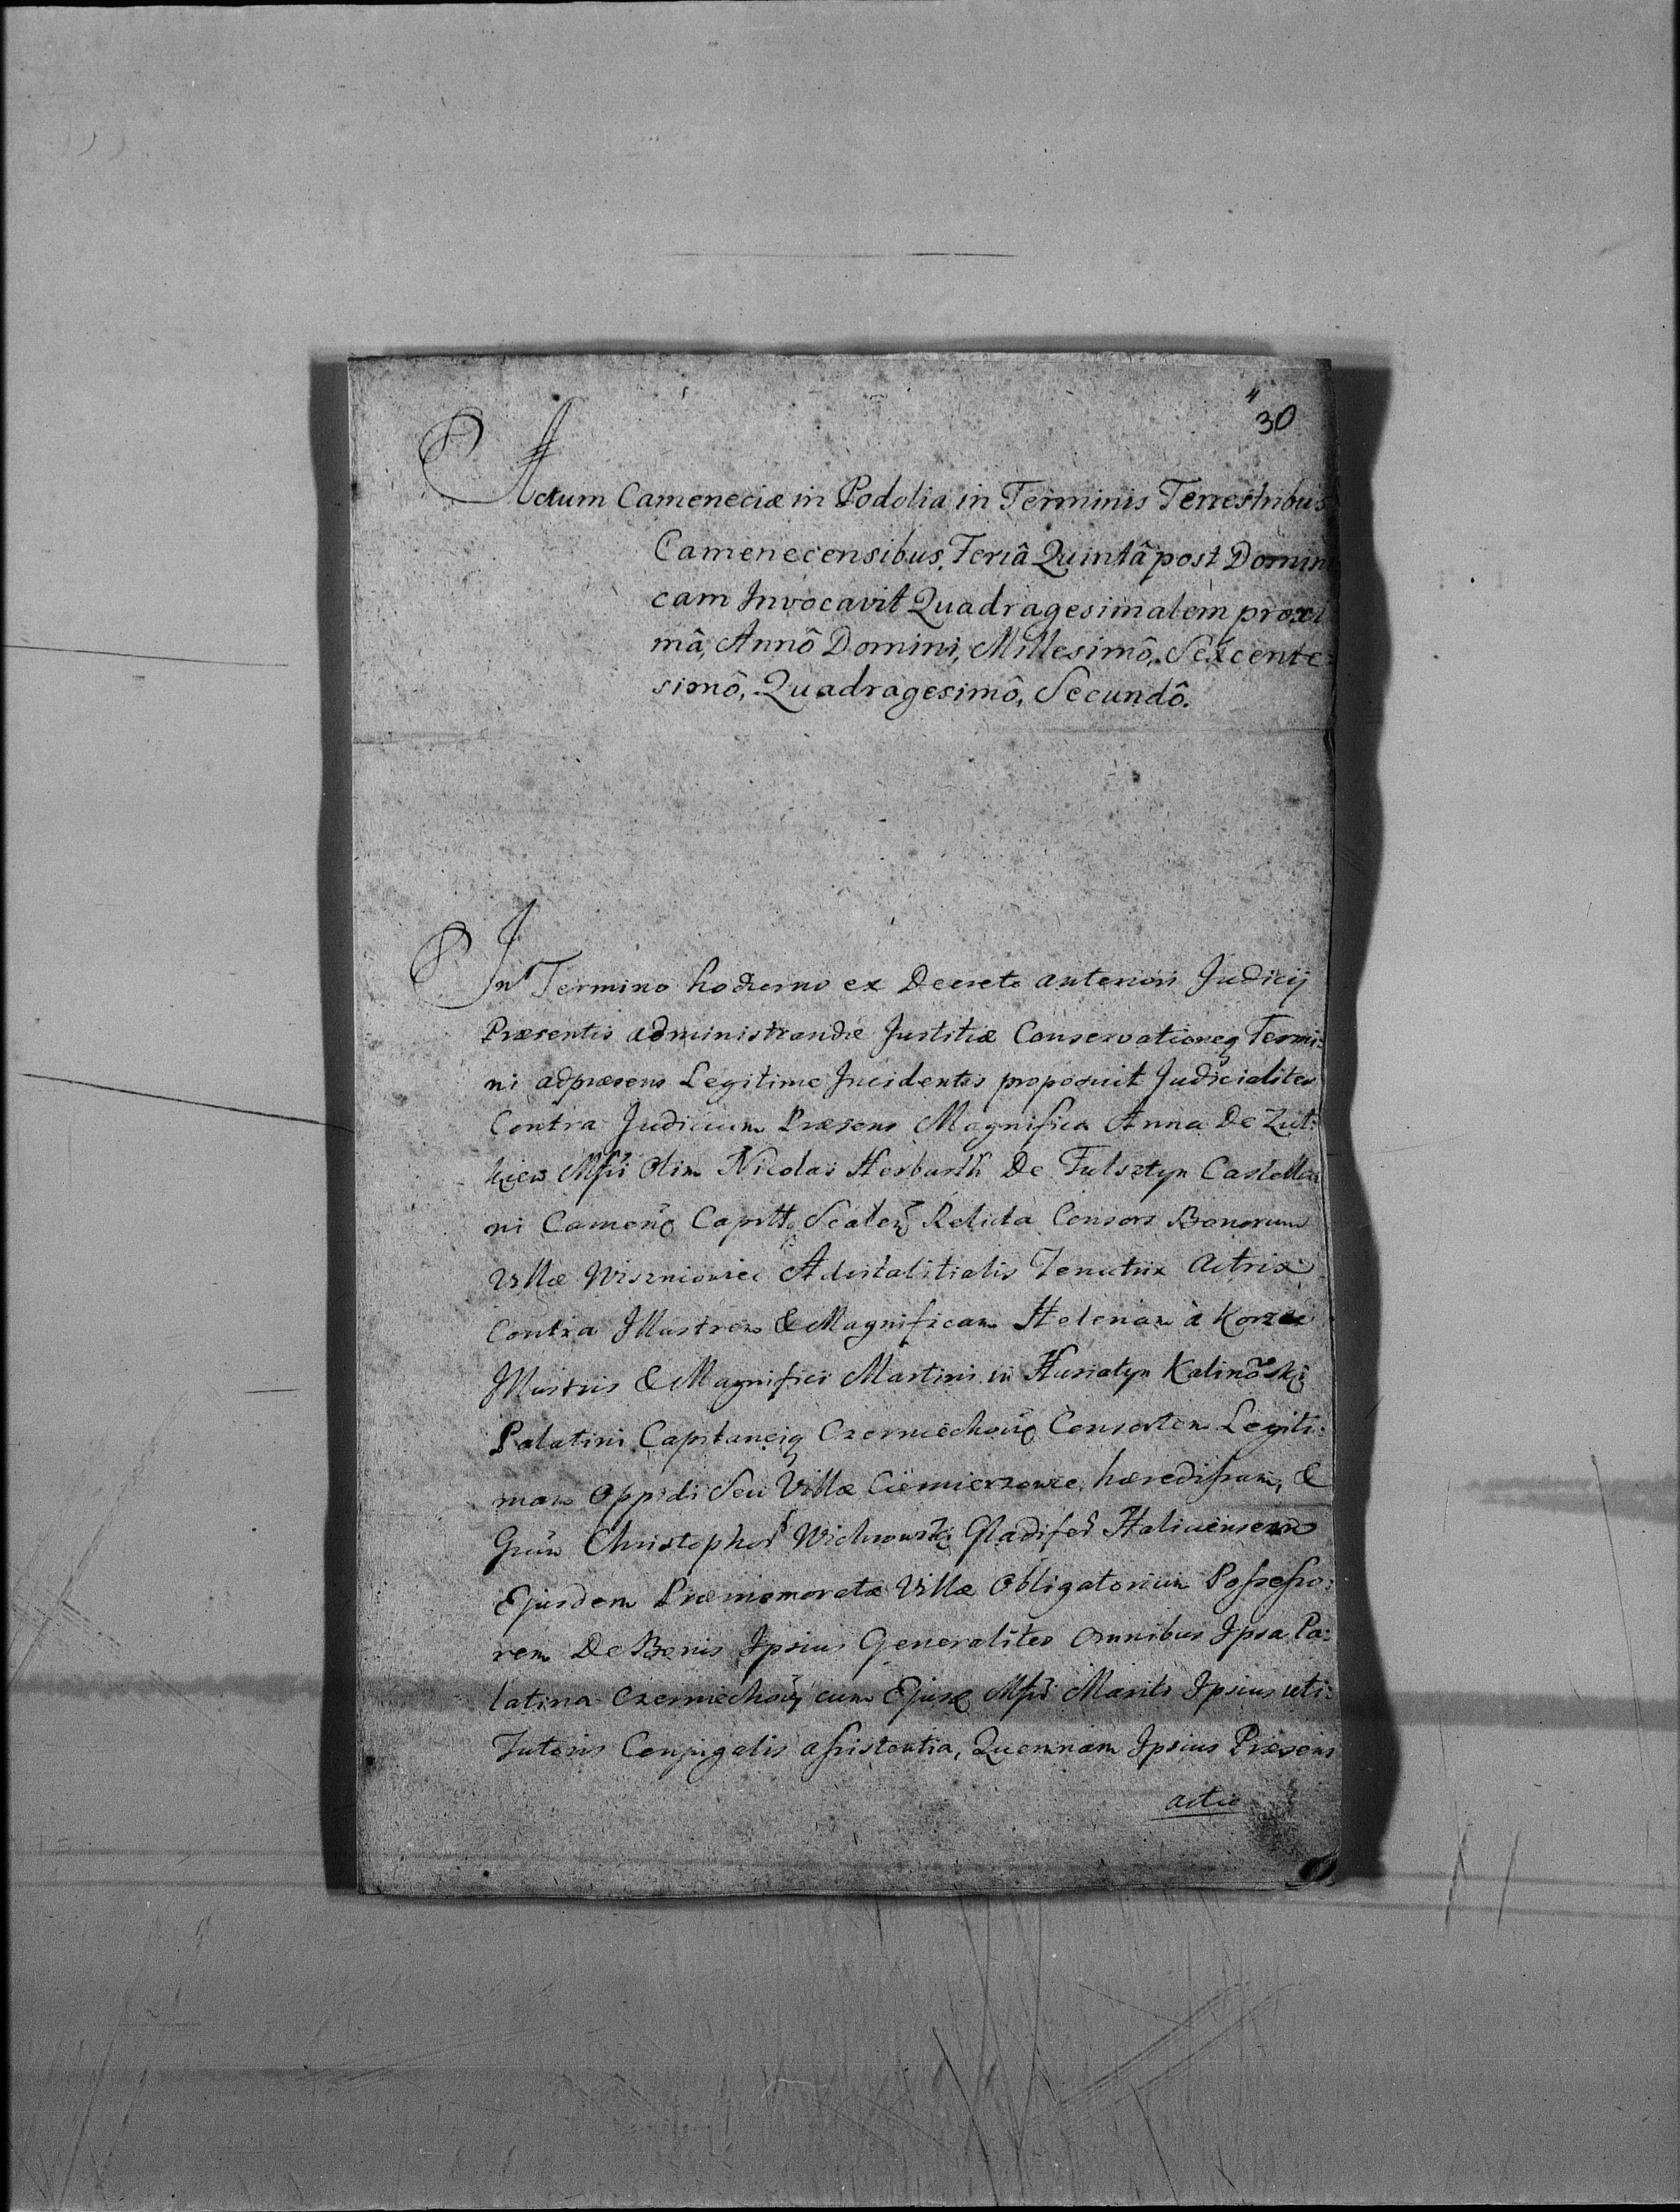 30
Actum Cameneciæ in Podolia in Terminis Terrestribus
Camenecensibus, Feriâ Quintâ post Domini
cam Invocavit Quadragesimalem proxi
mâ, Annô Domini, Millesimô, Sexcente:
simô, Quadragesimô, Secundô.
In Termino hodierno ex Decreto anteriori Judicij
Præsentis administrandæ Justitiæ Conservationeq Termi:
ni adpræsens Legitime Incidentis proposuit Judicialiter
Contra Judicium Præsens Magnifica Anna De
Mfci Olim Nicolai Herburth De Fulsztyn Castella
ni Camenec Capitt Scalen Relicta Consors Bonorum
Villæ Wiszniowiec Advitalitialis Tenutrix Actrix
Contra Illustrem & Magnificam Helenam à Korzec
Illustris & Magnifici Martini in Husiatyn Kalinowski
Palatini Capitaneiq Czerniechow Consortem Legiti:
mam Oppidi Seu Villæ Ciemierzowce, hæredissam, &
Grum Christophor Gladifer Haliciensem
Ejusdem Præmemoratæ Villæ Obligatorium Possesso:
rem De Bonis Ipsius Generaliter Omnibus Ipsa Pa:
latina Czerniechow cum Ejusd Mfci Mariti Ipsius uti:
Tutoris Conjugalis assistentia, Quemnam Ipsius Præsens
actio